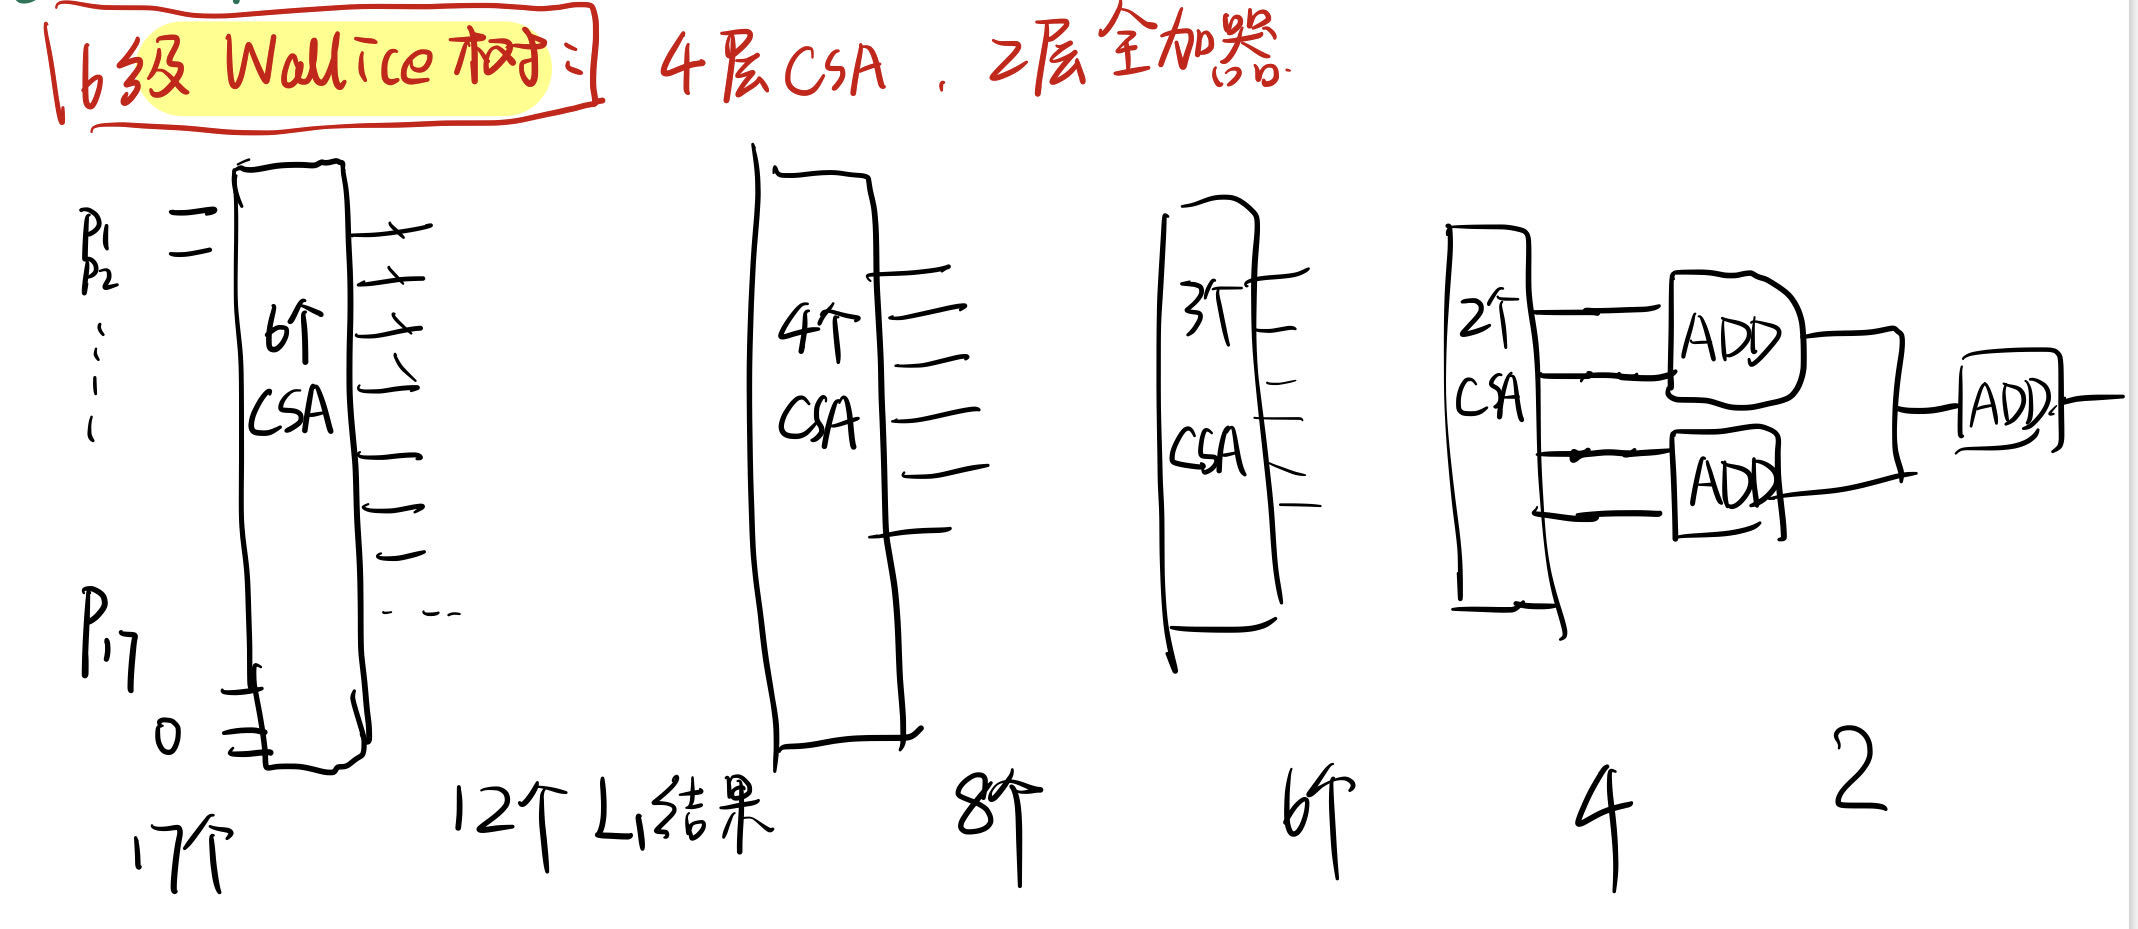 6级 Wallice 树: 4层CSA . 2层全加器.
P1
P2
6个
CSA
4个
CSA
3个
CSA
2个
CSA
ADD
ADD
ADD
P17
0
17个
12个 L1结果
8个
6个
4
2